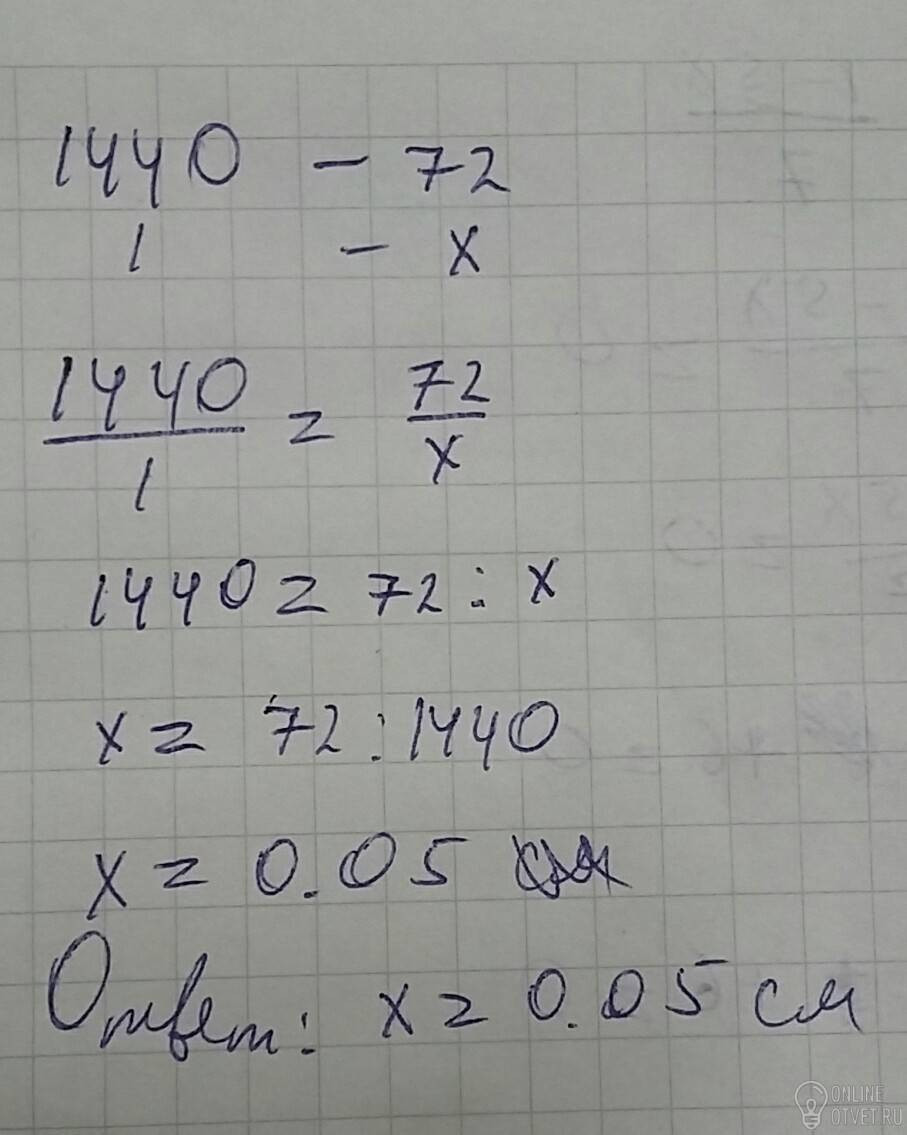 1440 – 72
1 – x
1440/1 = 72/x
1440 = 72 : x
x = 72 : 1440
x = 0.05
Ответ: x = 0.05 см
ONLINE
OTVET.RU